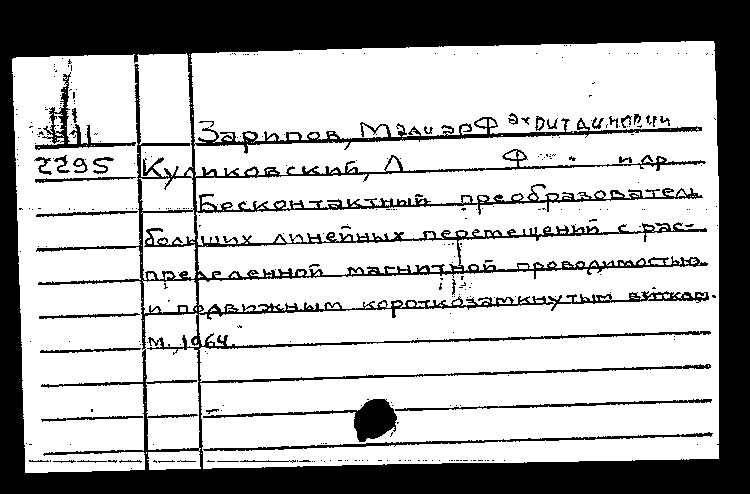 Зарипов, Мадияр Фахритдинович
2295 Куликовский, Л Ф и др.
Бесконтактный преобразователь
больших линейных перемещений с рас-
пределенной магнитной проводимостью
и подвижным короткозамкнутым витком.
М., 1964.